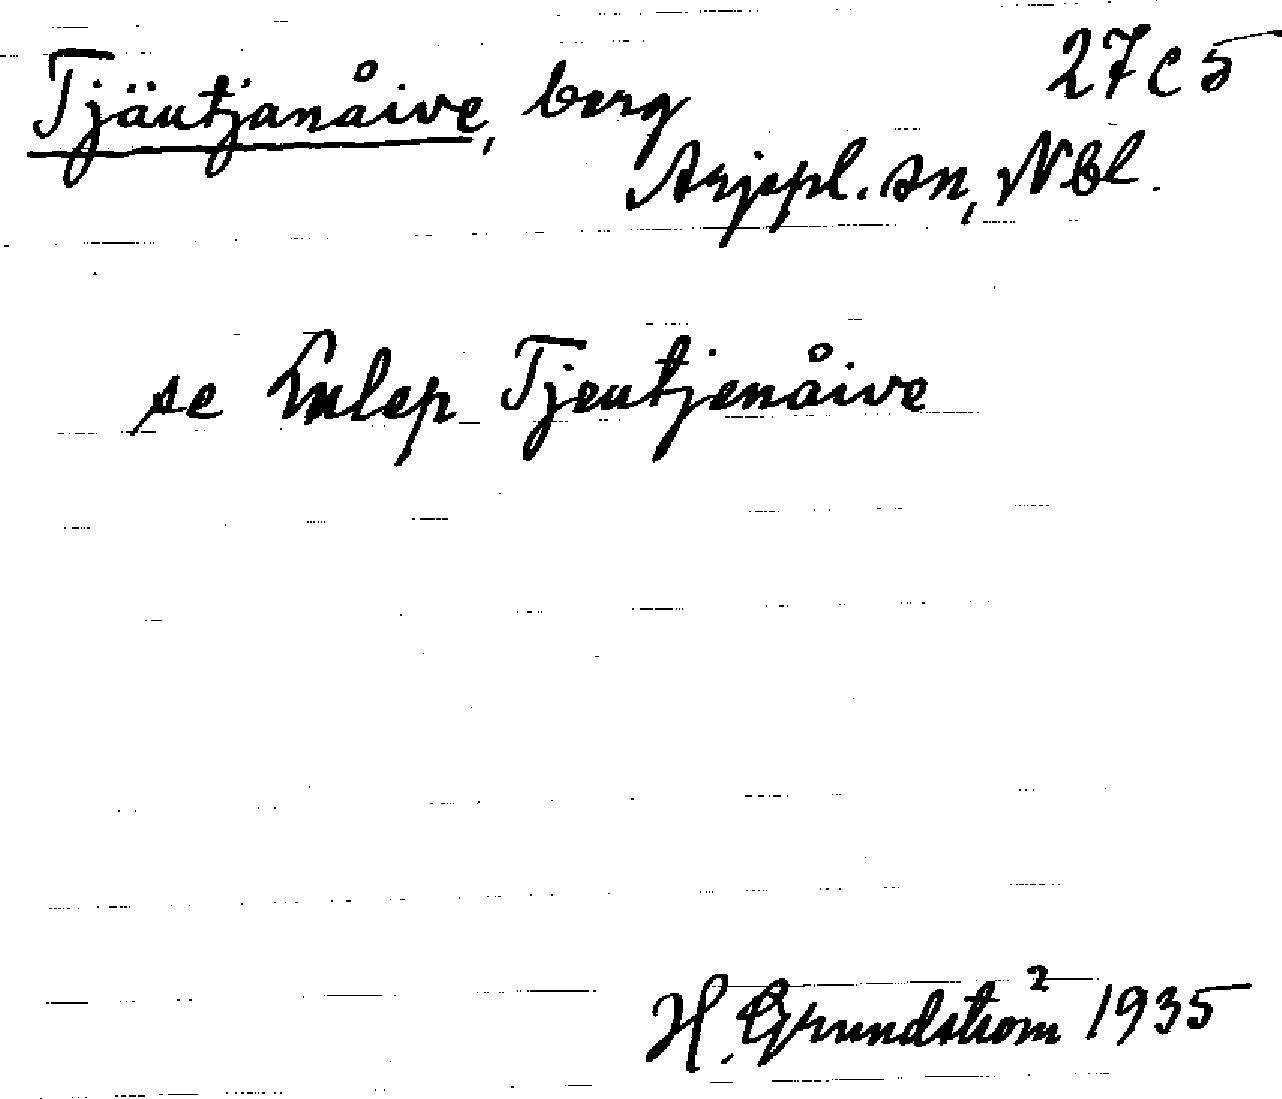 Tjäutjanåive, berg 27c5
Arjepl. sn, Nbl.
se Lulep Tjeutjenåive
H. Grundström 1935